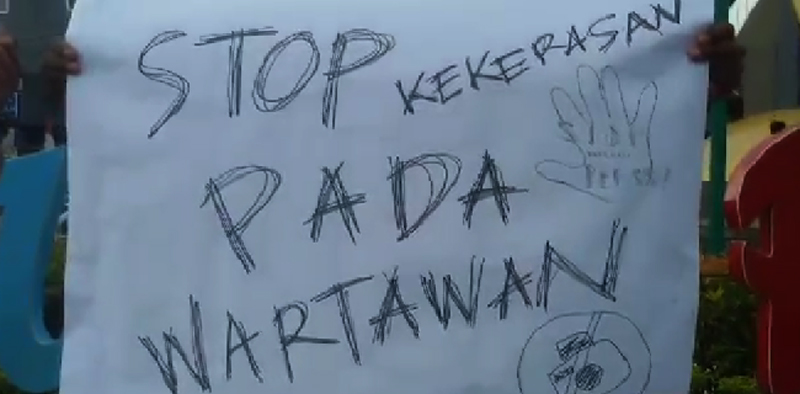 STOP KEKERASAN
PADA
WARTAWAN